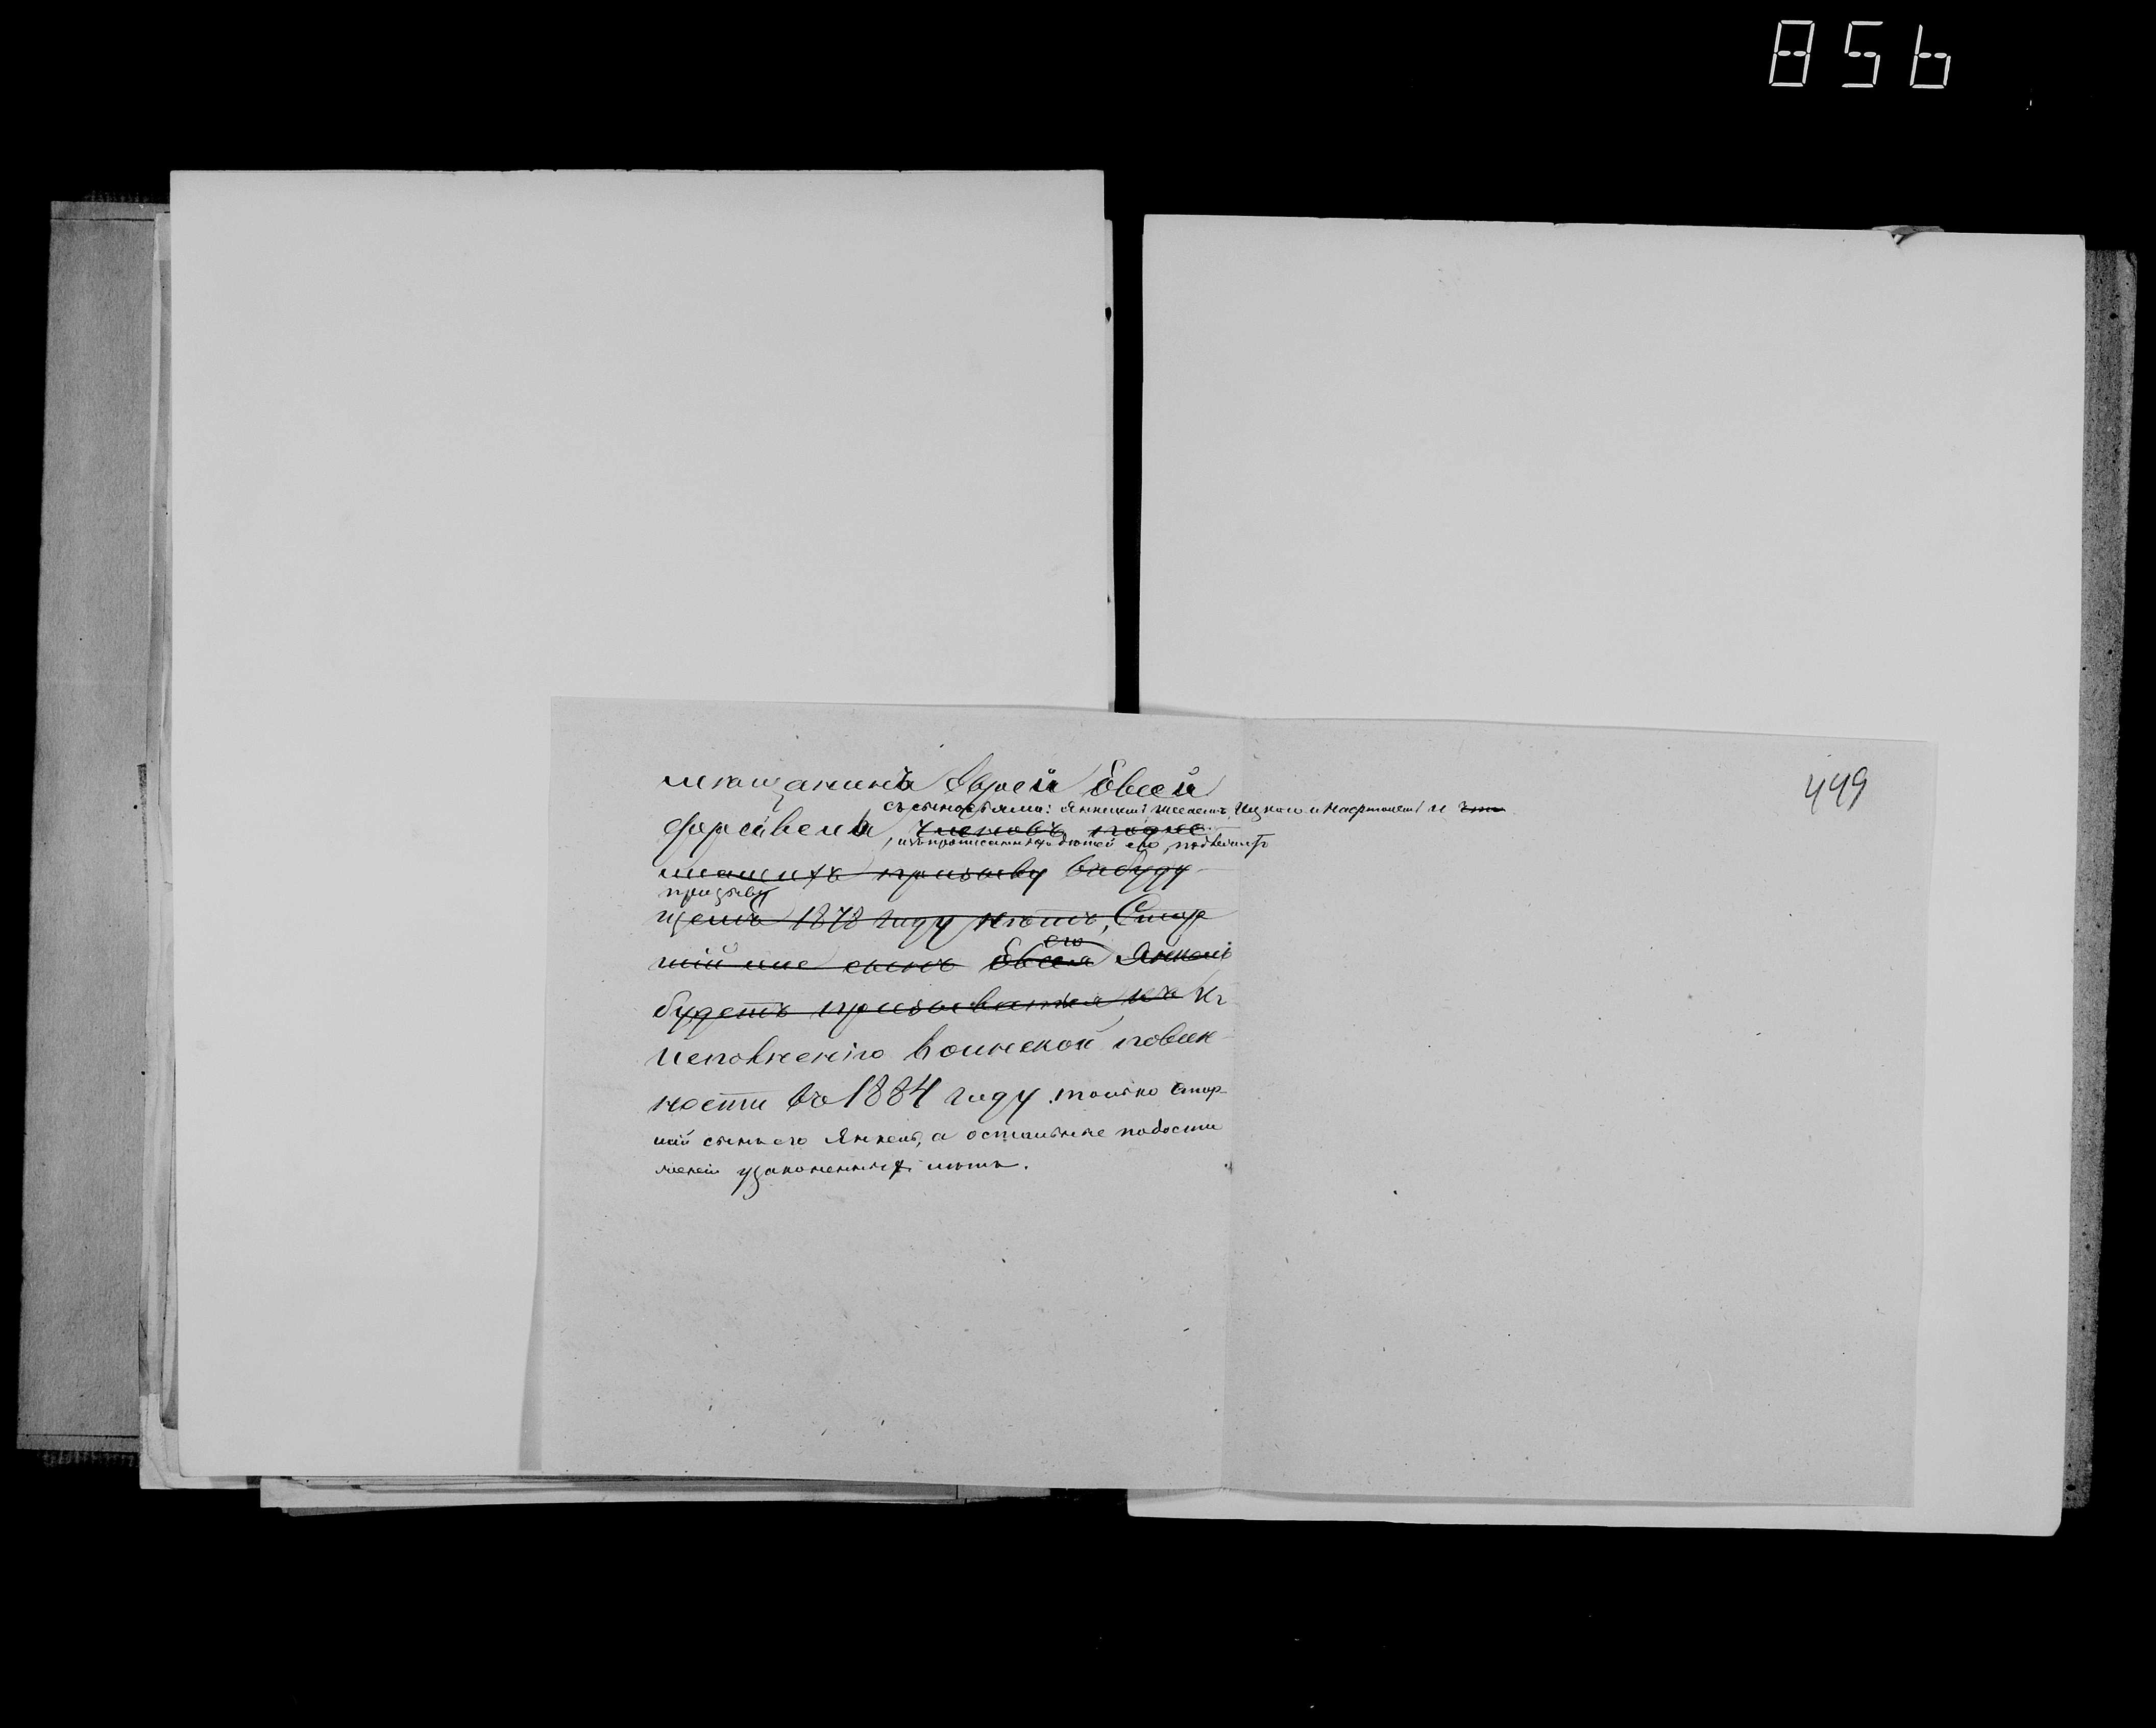 856
449
мѣщанинъ Еврей Евсей
съ сыновьями: Янкелемъ, Ицкомъ и Нафтолемъ и что
членовъ подле
, изъ прописанныхъ дѣтей его, подлежитъ
жащихъ призыву въ буду
призыву
щемъ 1878 году нѣтъ, Стар
его
шій же сынъ Евсея Янкель
будетъ призываться къ къ
исполненію воинской повин
ности въ 1884 году только стар
шій сынъ его Янкель, а остальные по дости
женіи узаконенныхъ лѣтъ.